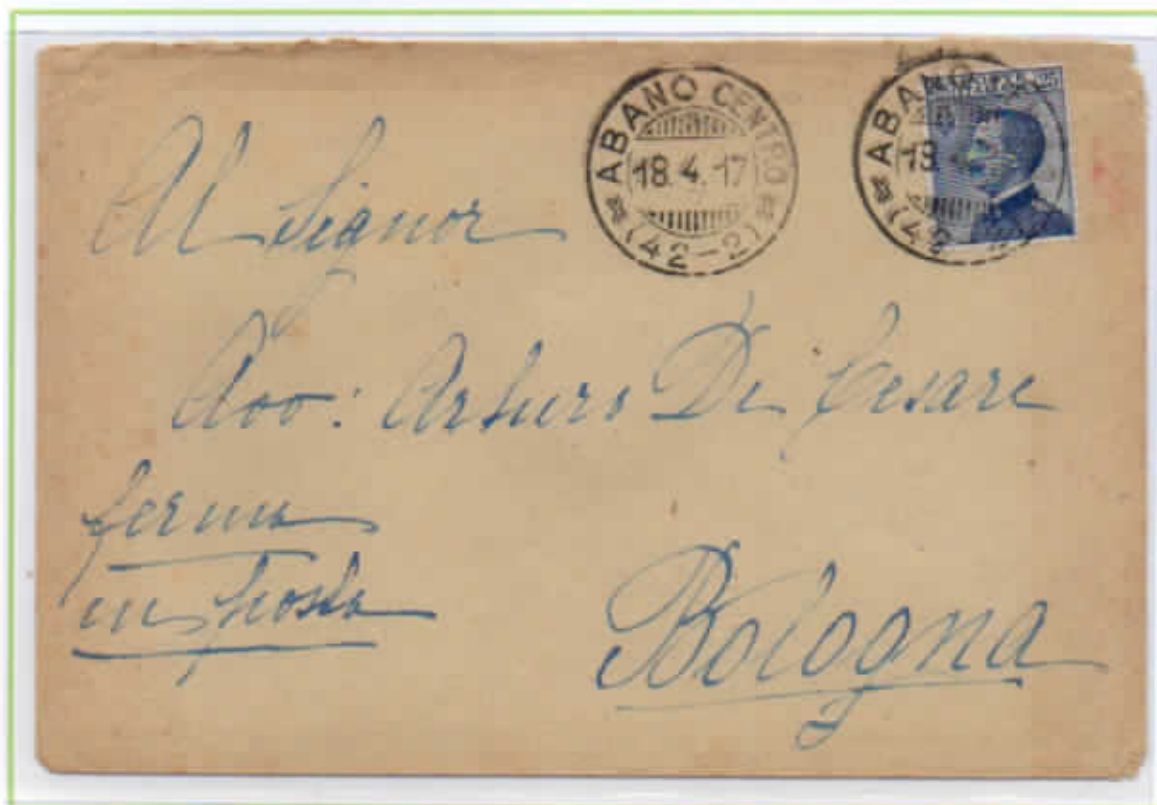 ABANO CENTRO
18.4.17
(42-2)
ABANO
18.
(42
25
Al Signor
Avv: Arturo De Cesare
ferma
in posta
Bologna